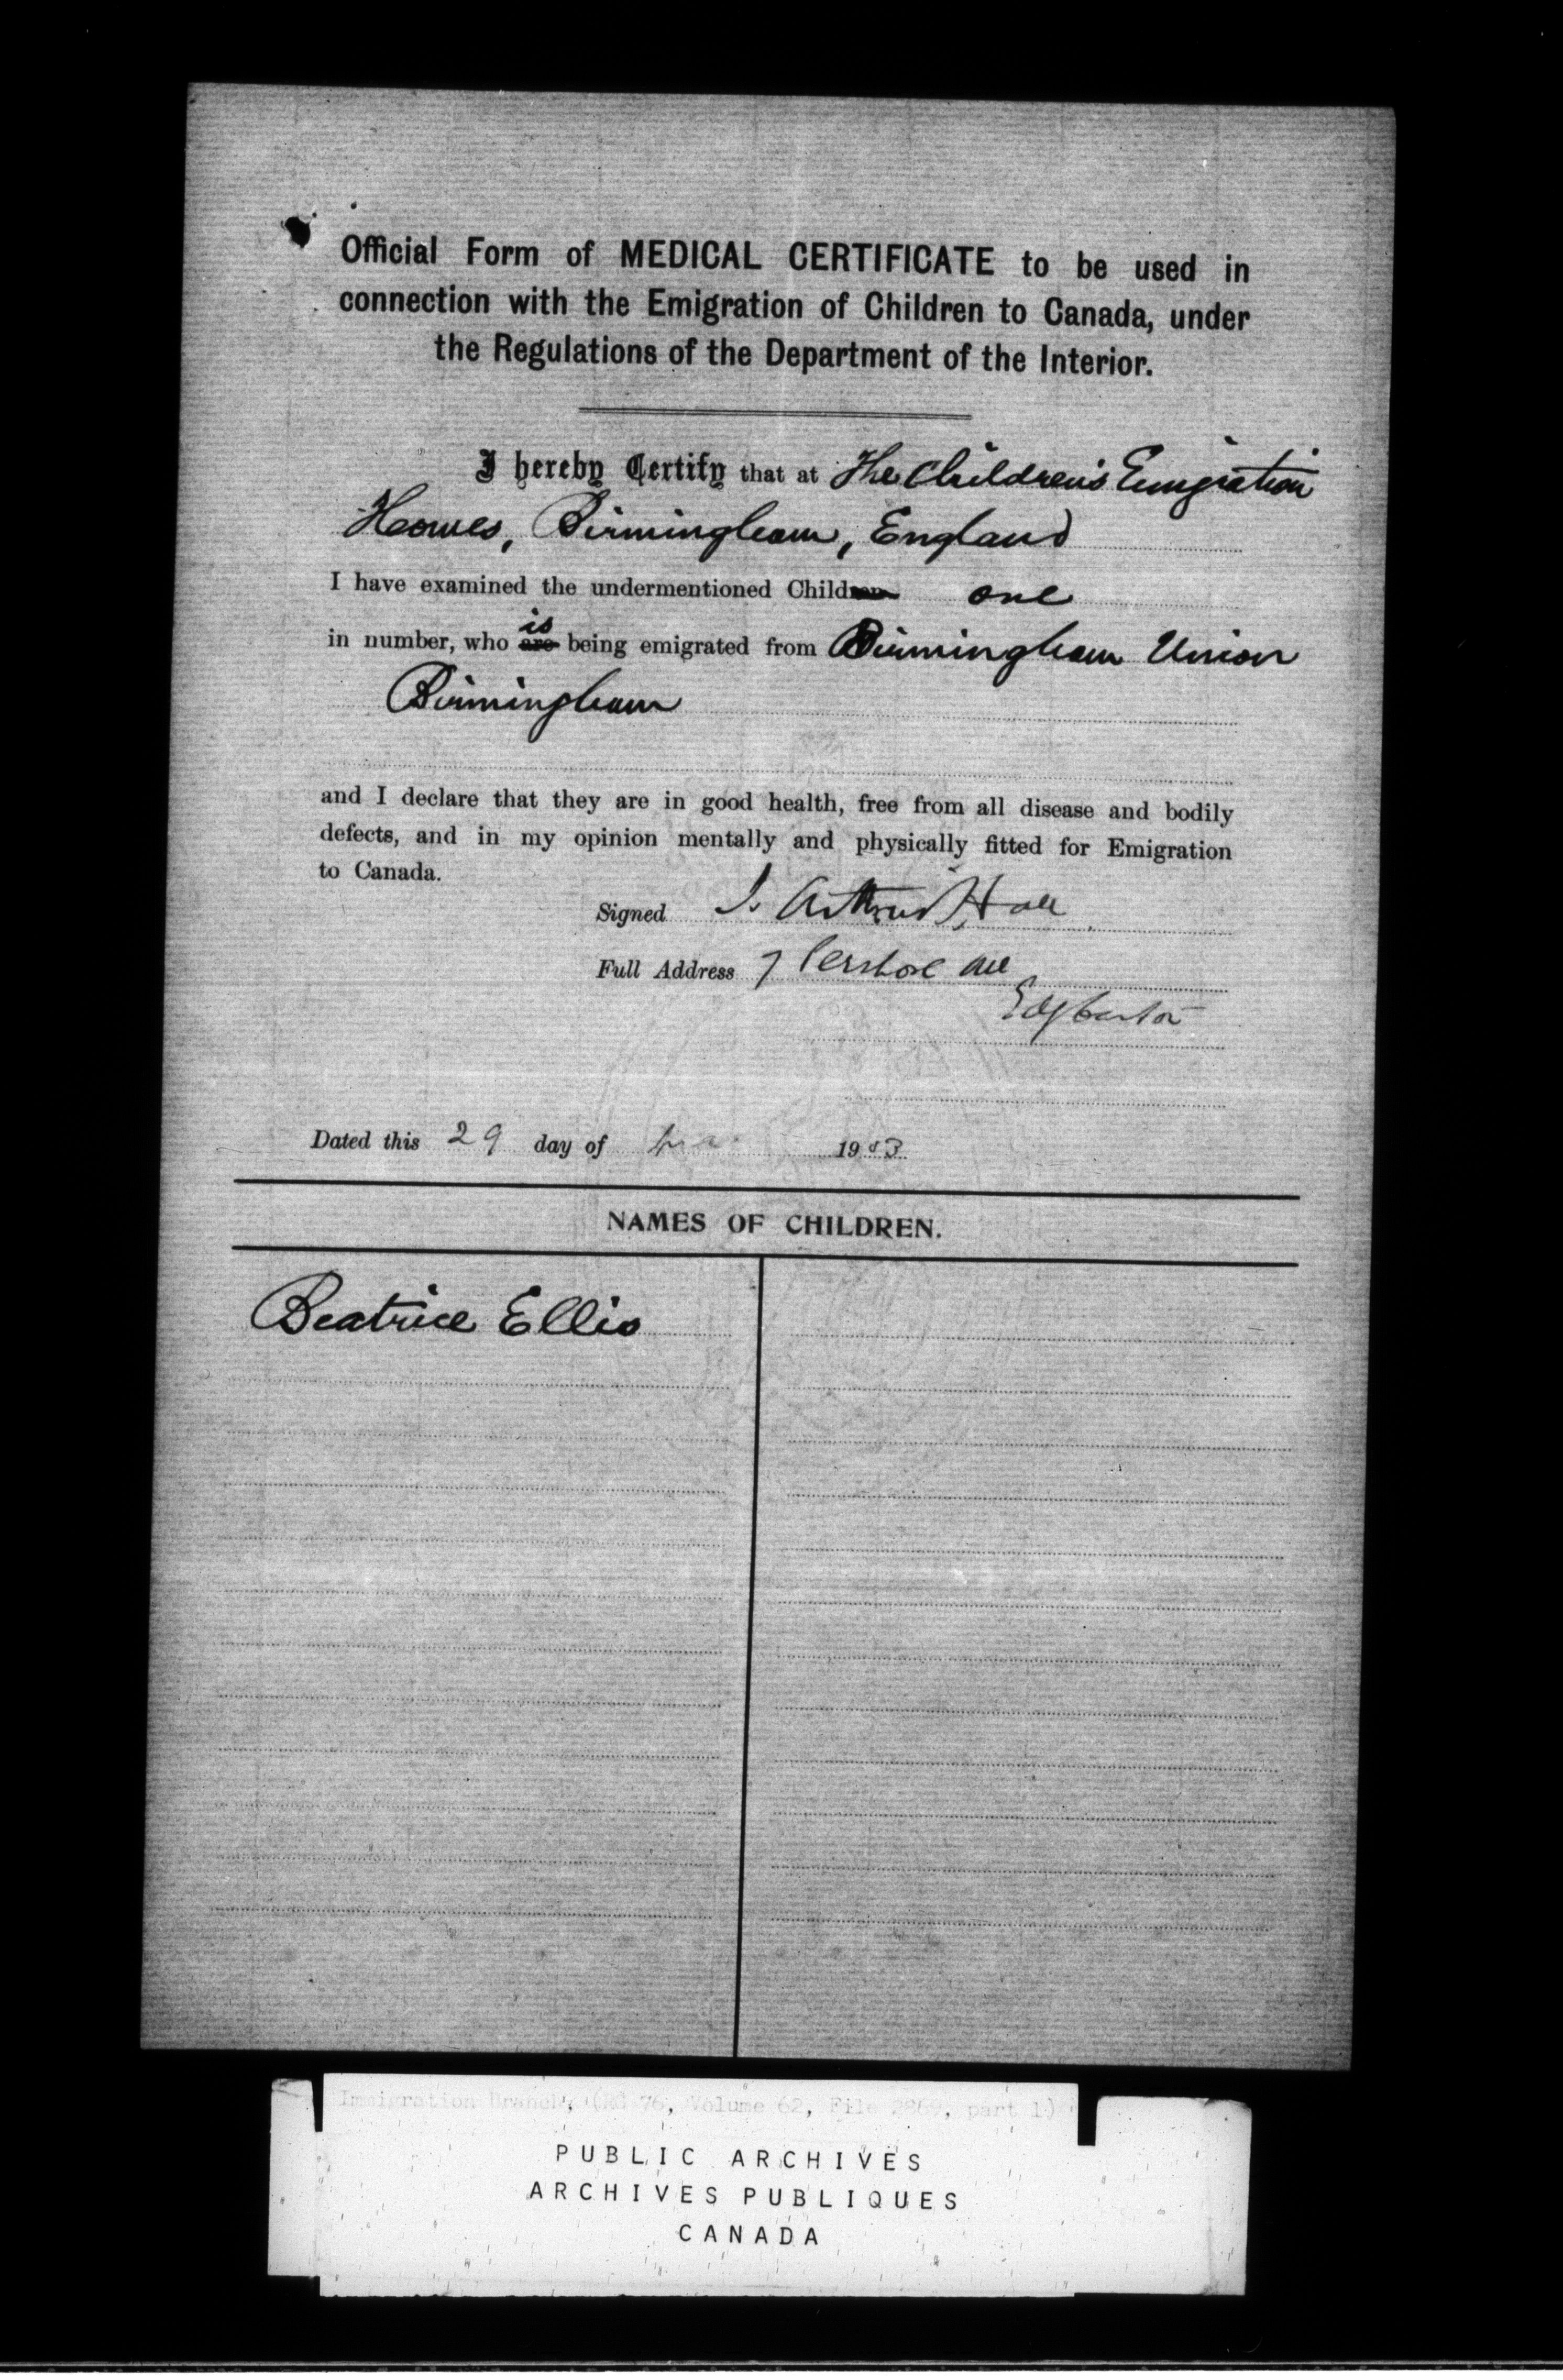 Official Form of MEDICAL CERTIFICATE to be used in
connection with the Emigration of Children to Canada, under
the Regulations of the Department of the Interior.
I hereby Certify that at The Children's Emigration
Homes, Birmingham, England
I have examined the undermentioned Children one
in number, who are is being emigrated from Birmingham Union
Birmingham
and I declare that they are in good health, free from all disease and bodily
defects, and in my opinion mentally and physically fitted for Emigration
to Canada.
Signed J. Arthur Hall
Full Address 7 Pershore
Edgbaston
Dated this 29 day of 1903
NAMES OF CHILDREN.
Beatrice Ellis
Immigration Branch, (RG 76, Volume 62, File 2869, part 1)
PUBLIC ARCHIVES
ARCHIVES PUBLIQUES
CANADA